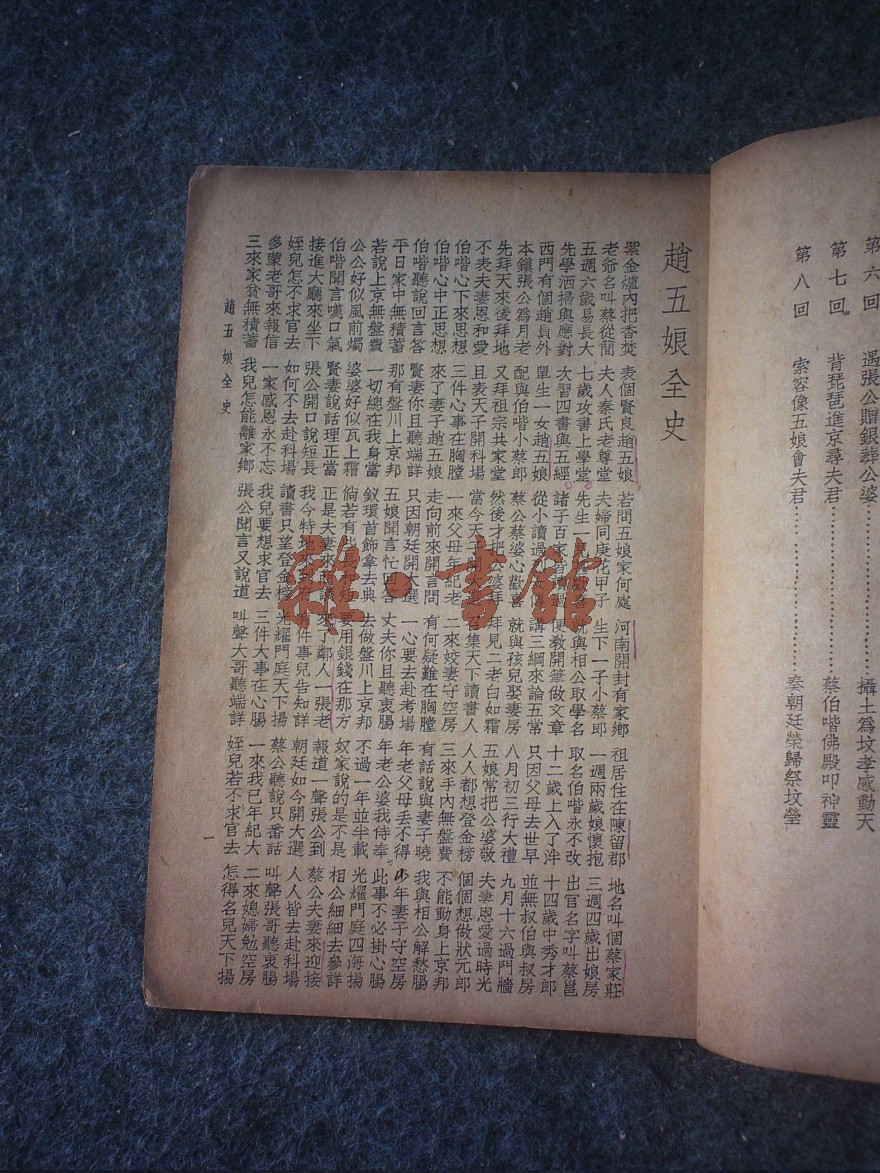 第六回 遇張公贈銀葬公婆……………………攝土爲墳孝感動天
第七回 背琵琶進京尋夫君……………………蔡伯喈佛殿叩神靈
第八回 索容像五娘會夫君……………………奏朝廷榮歸祭墳塋
趙五娘全史
紫金爐內把香焚 表個賢良趙五娘 若問五娘家何處 河南開封有家鄉 祖居住在陳留郡 地名叫個蔡家莊
老爺名叫蔡從簡 夫人秦氏老尊堂 夫婦同庚花甲子 生下一子小蔡郎 一週兩歲娘懷抱 三週四歲出娘房
五週六歲易長大 七歲攻書上學堂 先生一見 就與相公取學名 取名伯喈永不改 出官名字叫蔡邕
先學洒掃與應對 次習四書與五經 諸子百家 過 便教開筆做文章 十二歲上入了泮 十四歲中秀才郎
西門有個趙員外 單生一女趙五娘 從小讀過 講三綱來論五常 只因父母去世早 並無叔伯與叔房
本鎮張公爲月老 配與伯喈小蔡郎 蔡公蔡婆心歡喜 就與孩兒娶妻房 八月初三行大禮 九月十六過門牆
先拜天來後拜地 又拜祖宗共家堂 然後才把公婆拜 拜見二老白如霜 五娘常把公婆敬 夫妻恩愛過時光
不表夫妻恩和愛 且表天子開科場 當今天子開 召集天下讀書人 人人都想登金榜 個個想做狀元郎
伯喈心下來思想 三件心事在胸膛 一來父母年紀老 二來姣妻守空房 三來手內無盤費 不能動身上京邦
伯喈心中正思想 來了妻子趙五娘 走向前來開言問 有何疑難在胸膛 有話說與妻子曉 我與相公解愁腸
伯喈聽說回言答 賢妻你且聽端詳 只因朝廷開大選 一心要去赴考場 年老父母丢不得 少年妻子守空房
平日家中無積蓄 那有盤川上京邦 五娘聞言忙回答 丈夫你且聽衷腸 年老公婆我侍奉 此事不必掛心腸
若說上京無盤費 一切總在我身當 釵環首飾拿去典 去做盤川上京邦 不過一年並半載 光耀門庭四海揚
公公好似風前燭 婆婆好似瓦上霜 倘若有些長和短 要用銀錢在那方 奴家說的是不是 相公細細去參詳
伯喈聞言嘆口氣 賢妻說話理正當 正是夫妻來 來了鄰人一張老 報道一聲張公到 蔡公夫妻來迎接
接進大廳來坐下 張公開口說短長 我今特地 有件事兒告知詳 朝廷如今開大選 人人皆去赴科場
姪兒怎不求官去 如何不去赴科場 讀書只望登金榜 光耀門庭天下揚 蔡公聽說只番話 叫聲張哥聽衷腸
多蒙老哥來報信 一家感恩永不忘 我兒要想求官去 三件大事在心腸 一來我已年紀大 二來媳婦勉空房
三來家貧無積蓄 我兒怎能離家鄉 張公聞言又說道 叫聲大哥聽端詳 姪兒若不求官去 怎得名兒天下揚
趙五娘全史
一
雜·書館